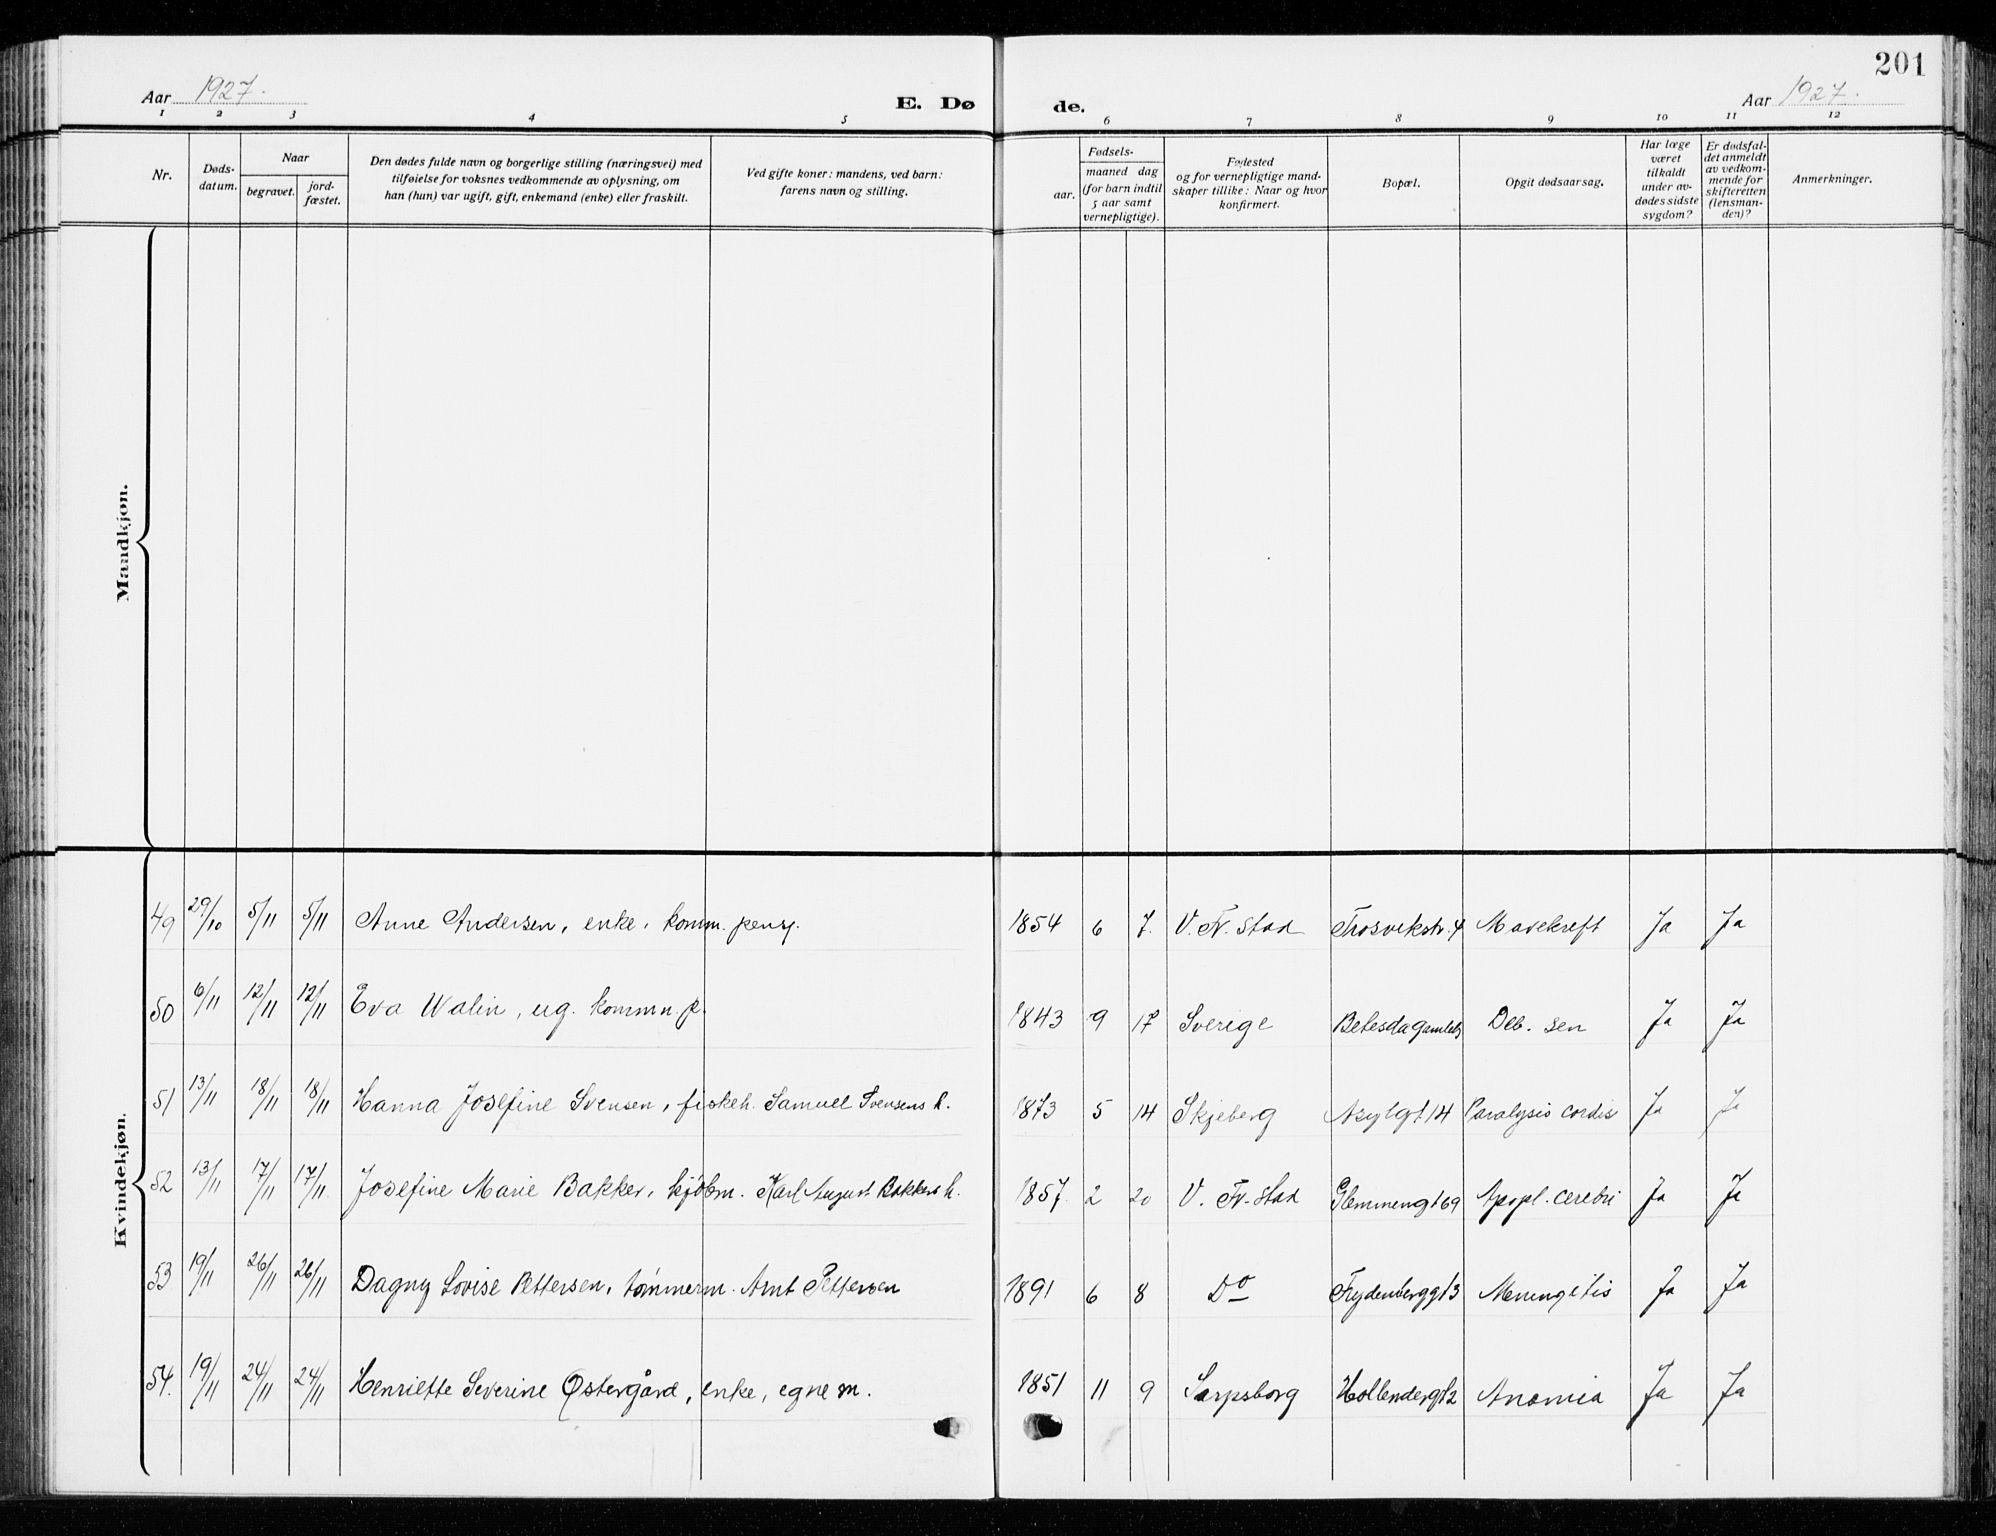 201
Aar 1927.
E. Dø de.
Aar 1927.
1 2 3 4 5 6 7 8 9 10 11 12
Nr.
Døds-
datum.
Naar
begravet.
jord-
fæstet.
Den dødes fulde navn og borgerlige stilling (næringsvei) med
tilføielse for voksnes vedkommende av oplysning, om
han (hun) var ugift, gift, enkemand (enke) eller fraskilt.
Ved gifte koner: mandens, ved barn:
farens navn og stilling.
Fødsels-
aar.
maaned dag
(for barn indtil
5 aar samt
vernepligtige).
Fødested
og for vernepligtige mand-
skaper tillike: Naar og hvor
konfirmert.
Bopæl.
Opgit dødsaarsag.
Har læge
været
tilkaldt
under av-
dødes sidste
sygdom?
Er dødsfal-
det anmeldt
av vedkom-
mende for
skifteretten
(lensman-
den)?
Anmerkninger.
Mandkjøn.
Kvindekjøn.
49 29/10 5/11 5/11 Anne Andersen, enke, komm. pensj. 1854 6 7. V. Fr. stad Trosvikstr. 4 Mavekreft Ja Ja
50 6/11 12/11 12/11 Eva Walin, ug. kommn. p. 1843 9 17 Sverige Betesda gamleh Deb. sen Ja Ja
51 13/11 18/11 18/11 Hanna Josefine Svensen, fiskeh. Samuel Svensens h. 1873 5 14 Skjeberg Asylgt 14 Paralysis cordis Ja Ja
52 13/11 17/11 17/11 Josefine Marie Bakker, kjøbm. Karl August Bakkers h. 1857 2 20 V. Fr. stad Glemmengt 69 Apopl. cerebri Ja Ja
53 19/11 26/11 26/11 Dagny Lovise Pettersen, tømmerm. Arnt Pettersen 1891 6 8 Do Frydenberggt 3 Meningitis Ja Ja
54. 19/11 24/11 24/11 Henriette Severine Østergård, enke, egne m. 1851 11 9 Sarpsborg Hollendergt 2 Anæmia Ja Ja